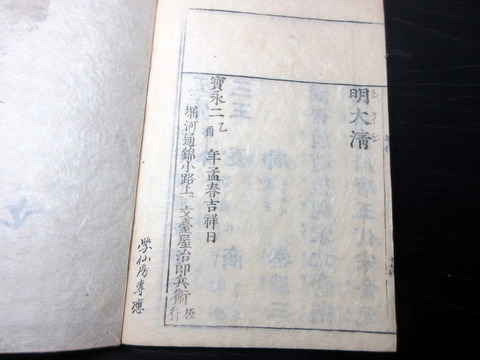 明大清
寶永二乙酉年孟春吉祥日
堀河通錦小路上ル
文臺屋治郎兵衛
行
學仙房李應